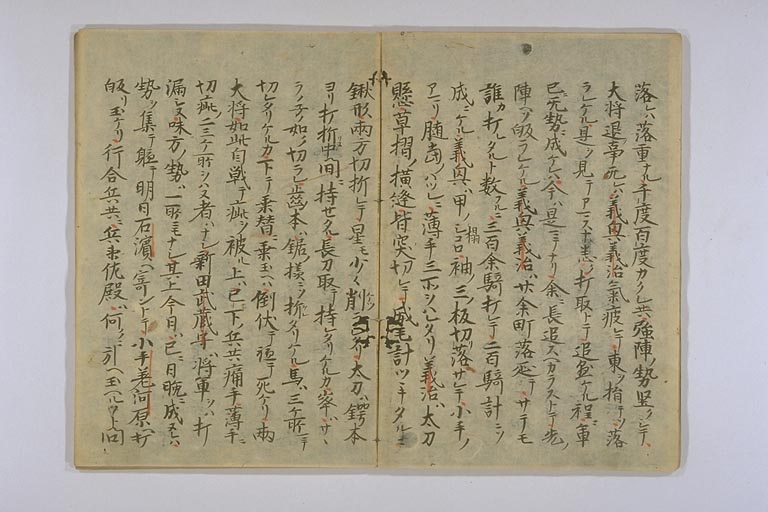 落レハ落重ナル千度百度カクレ共強陣ノ勢堅クシテ
大将退ケレハ義興義治氣疲レテ東ヲ指テソ落
ラレケル是ヲ見テ打取ントテ追蒐ケル程ニ軍
已ニ無勢ニ成ケレハ今ハ是ニ長追スカラストテ先
陣ヘソ皈ラレケル義興義治ハ廿余町落延テサテモ
誰カ打レタルト数フルニ三百余騎打レテ二百騎計ニソ
成ニケル義興ハ甲ノシコロ袖ノ三ノ板切落サレテ小手ノ
アマリ臑當ノハツレニ薄手三ホシハレタリ義治ハ太刀
懸草摺ノ横縫皆突切レテ威毛計ツキタルニ
鍬形両方切折レテ星モ少々削ラレ太刀ハ鍔本
ヨリ打折中間ニ持セタル長刀取テ持レタリケルカ峯ハサヽ
ラノ子ノ如ク切ラレ刃本ハ鋸様ニソ折タリケル馬ハ三ケ所マテ
切レタリケルカ下テ乗替ニ乗玉ヘハ倒伏テ頓テ死ケリ両
大将如此自戦テ疵ヲ被ル上ハ已下ノ兵共痛手薄手ニ
切疵ノ二三ケ所シハヌ者ハナシ新田武蔵守ハ将軍ヲハ打
漏シヌ味方ノ勢ハ一所ニモナシ其上今日ハ已ニ日晩ニ成ヌレハ
勢ヲ集テ軈テ明日石濱ヘ寄ントテ小手差河原ヘ打
皈リ玉ケリ行合兵共ニ兵庫佐殿ハ何クヘ引ヘ玉ヘルソト問